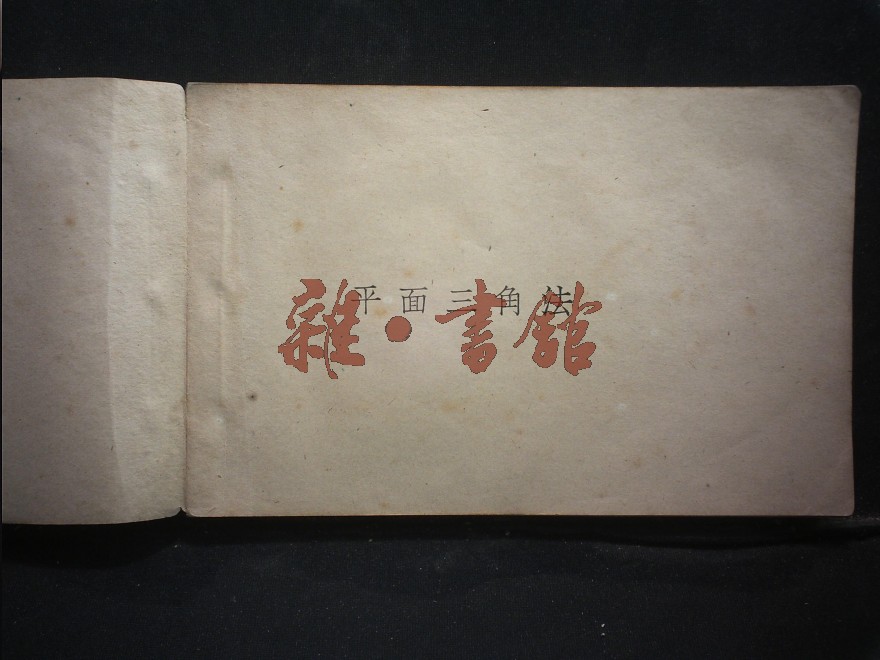 平面三角法
雜·書館